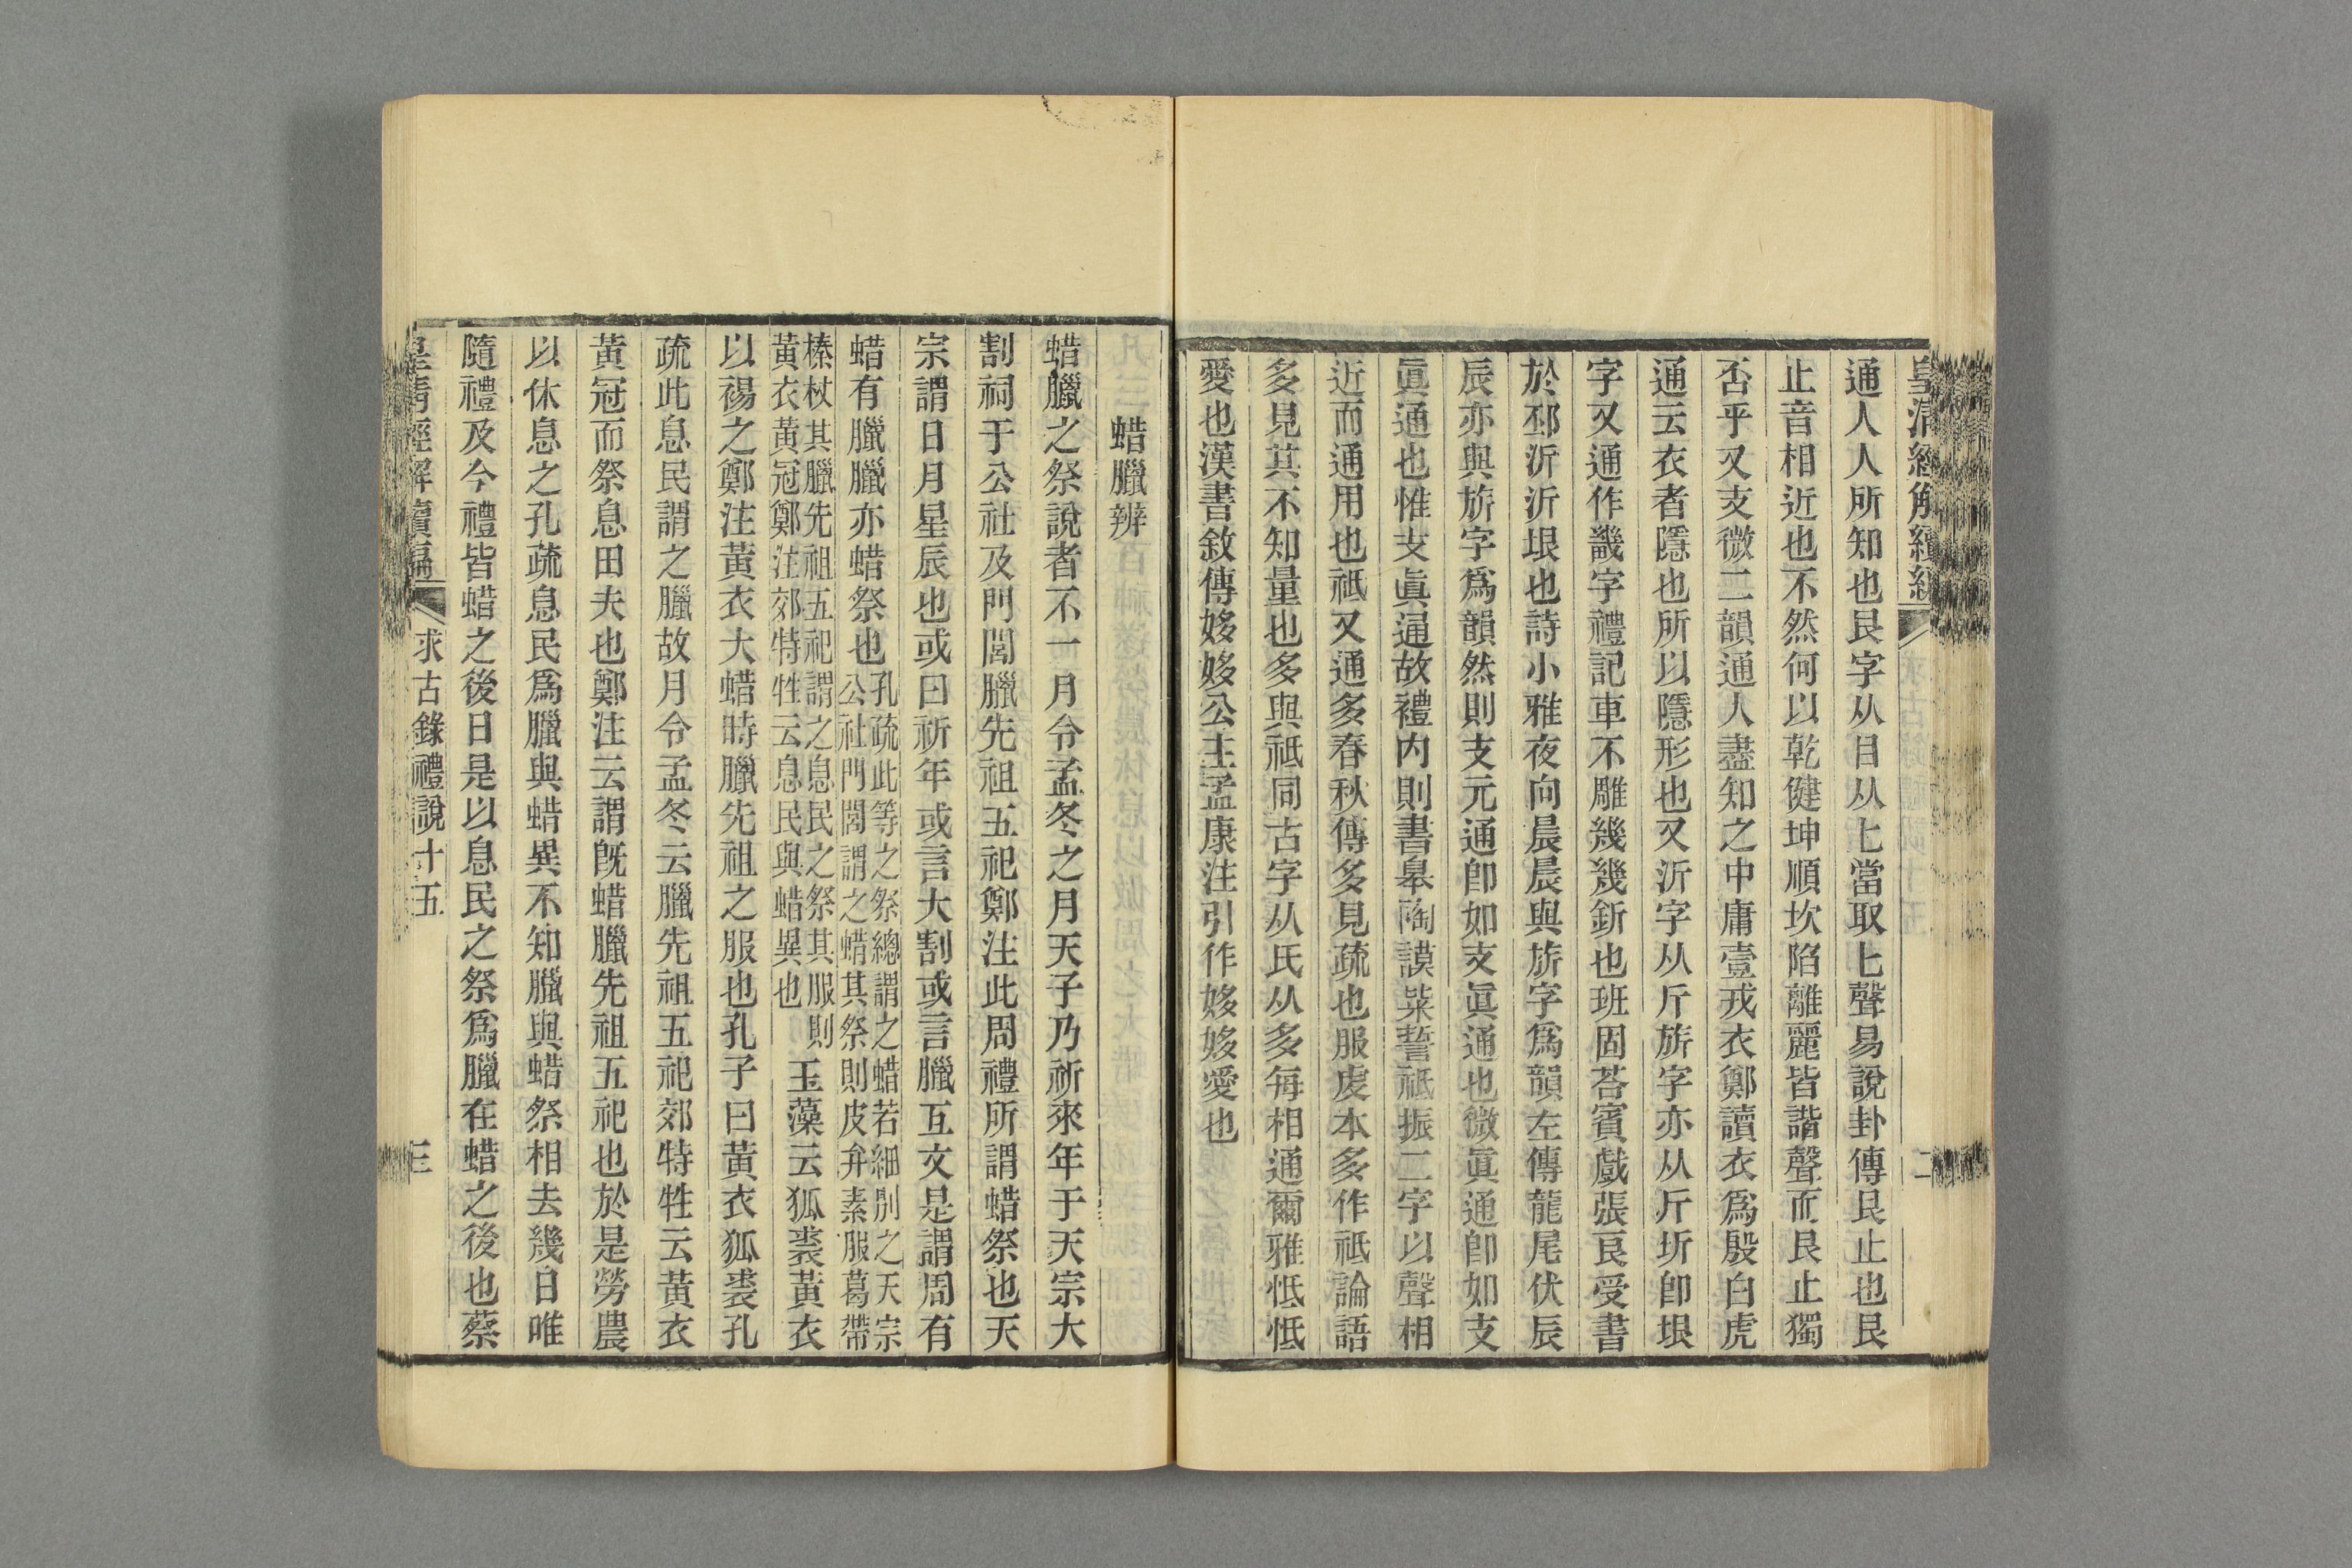 通人人所知也艮字从日从匕當取匕聲易說卦傳艮止也艮
止音相近也不然何以乾健坤順坎陷離麗皆諧聲而艮止獨
否乎又支微二韻通人盡知之中庸壹戎衣鄭讀衣爲殷白虎
通云衣者隱也所以隱形也又沂字从斤旂字亦从斤圻卽垠
字又通作畿字禮記車不雕幾幾釿也班固荅賓戲張良受書
於邳沂沂垠也詩小雅夜向晨晨與旂字爲韻左傳龍尾伏辰
辰亦與旂字爲韻然則支元通卽如支眞通也微眞通卽如支
眞通也惟支眞通故禮内則書皋陶謨粊誓祗振二字以聲相
近而通用也祗又通多春秋傳多見疏也服虔本多作祗論語
多見其不知量也多與祗同古字从氏从多每相通爾雅恀恀
愛也漢書敘傳姼姼公主孟康注引作姼姼愛也
蜡臘辨
蜡臘之祭說者不一月令孟冬之月天子乃祈來年于天宗大
割祠于公社及門閭臘先祖五祀鄭注此周禮所謂蜡祭也天
宗謂日月星辰也或曰祈年或言大割或言臘互文是謂周有
蜡有臘臘亦蜡祭也孔疏此等之祭總謂之蜡若細別之天宗
公社門閭謂之蜡其祭則皮弁素服葛帶
榛杖其臘先祖五祀謂之息民之祭其服則
黃衣黃冠鄭注郊特牲云息民與蜡異也玉藻云狐裘黃衣
以裼之鄭注黃衣大蜡時臘先祖之服也孔子曰黃衣狐裘孔
疏此息民謂之臘故月令孟冬云臘先祖五祀郊特牲云黃衣
黃冠而祭息田夫也鄭注云謂旣蜡臘先祖五祀也於是勞農
以休息之孔疏息民爲臘與蜡異不知臘與蜡祭相去幾日唯
隨禮及今禮皆蜡之後日是以息民之祭爲臘在蜡之後也蔡
皇淸經解續編 求古錄禮說十五 三